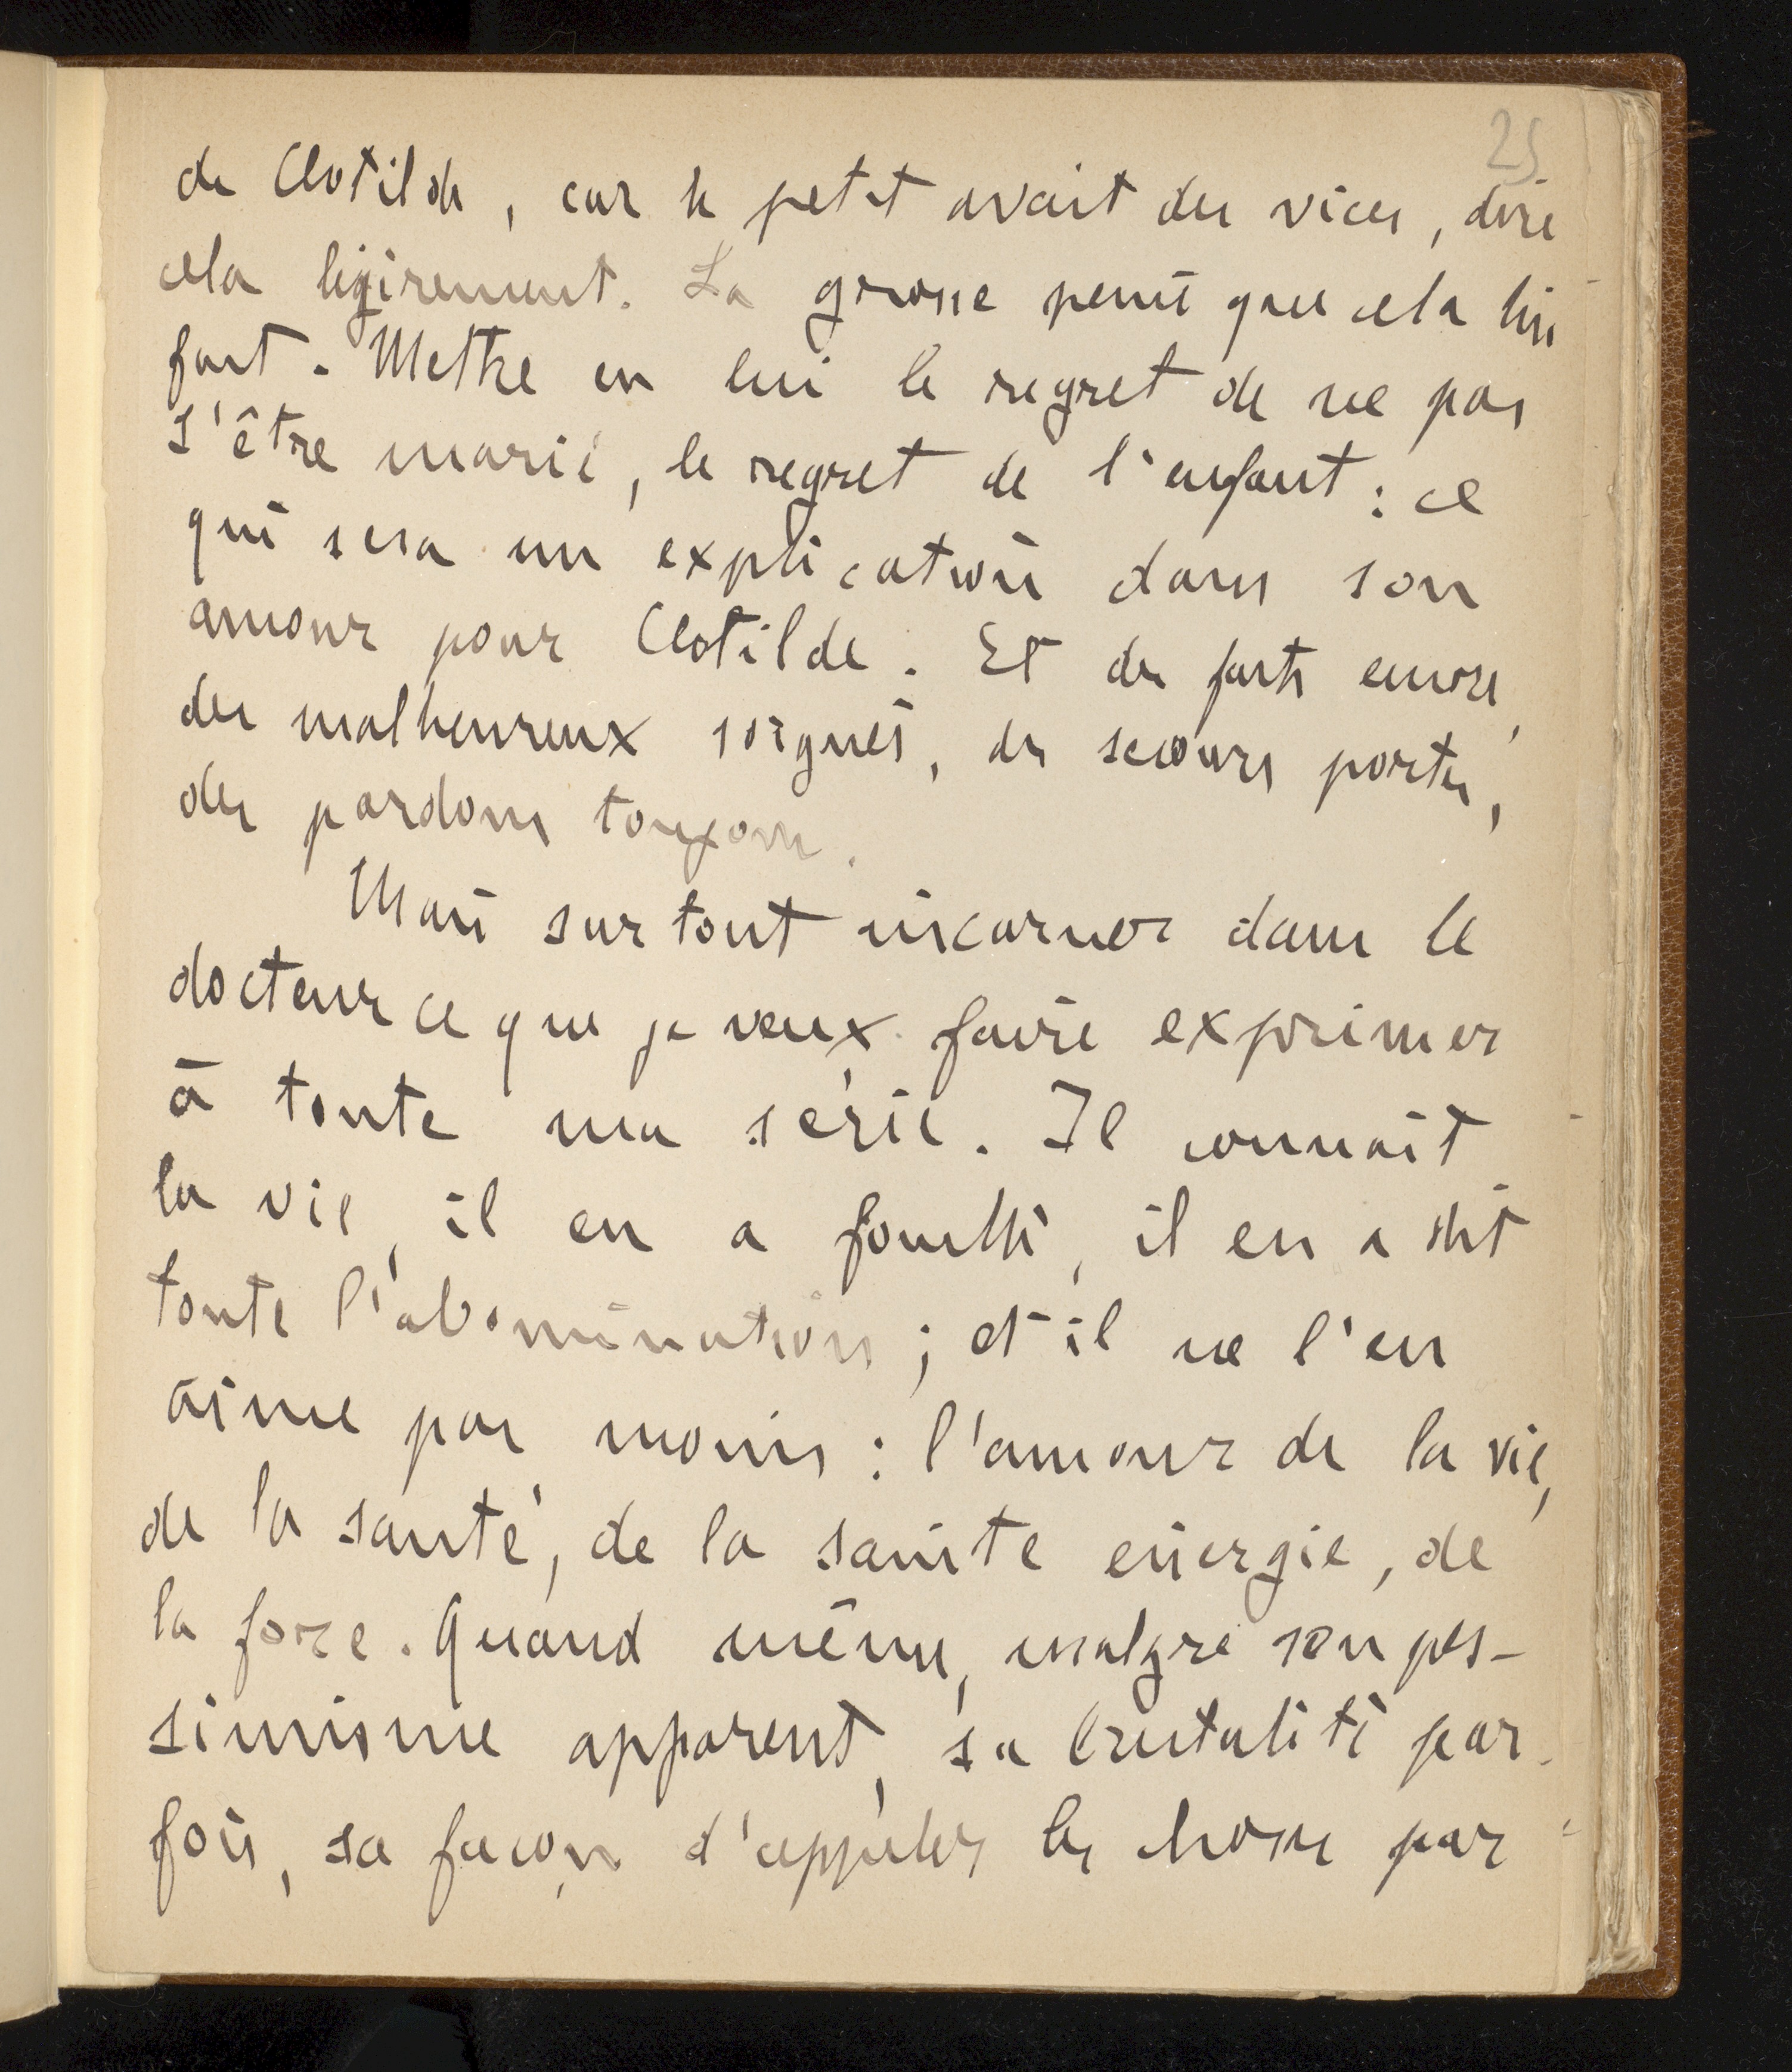 25
de Clotilde, car le petit avait des vices, dire
cela légèrement. La grosse peine que cela lui
fait. Mettre en lui le regret de ne pas
s'être marié, le regret de l'enfant : ce
qui sera un explication dans son
amour pour Clotilde. Et des faits encore,
des malheureux soignés, des secours portés,
des pardons toujours.
Mais surtout incarner dans le
docteur ce que je veux faire exprimer
à toute ma série. Il connait
la vie, il en a fouillé, il en a dit
toute l'abomination ; et il ne l'en
aime pas moins : l'amour de la vie,
de la santé, de la sainte énergie, de
la force. Quand même, malgré son pes-
simisme apparent, sa brutalité par-
fois, sa façon d'appeler les choses par